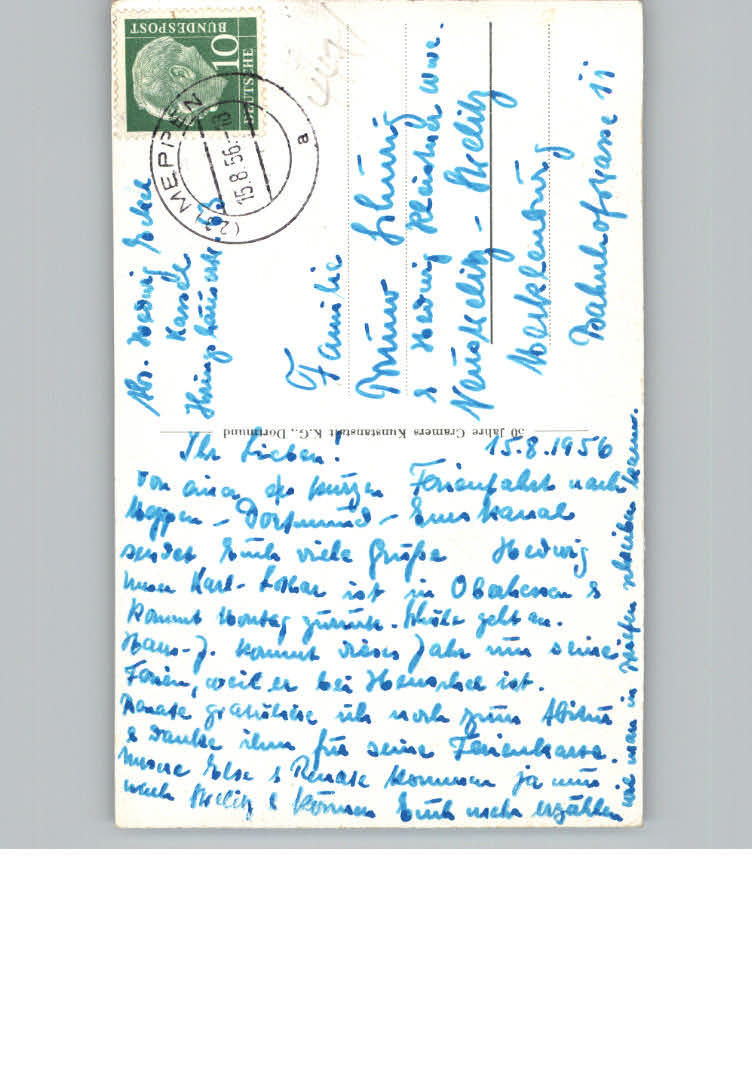 DEUTSCHE
BUNDESPOST
10
MEPPEN
15.8.56.-18
a
Abs. Hedwig
Kassel
Familie
Bruno
& Hedwig Wwe.
Neustrelitz - Strelitz
Mecklenburg
Bahnhofstrasse 11
50 Jahre Cramers Kunstanstalt K.G., Dortmund
Ihr Lieben! 15.8.1956
Von einer kurzen Ferienfahrt nach
Meppen - Dortmund - Emskanal
sendet Euch viele Grüße Hedwig
Unser Karl- ist in Oberhessen &
kommt Montag zurück. Schule geht an.
Hans-J. kommt dieses Jahr um seine
Ferien, weil er bei Henschel ist.
gratuliere ich noch zum Abitur
& danke ihm für seine Ferienkarte.
Unsere Else & Renate kommen ja nun
nach Strelitz & können Euch mehr erzählen
wie man in Briefen schreiben kann.